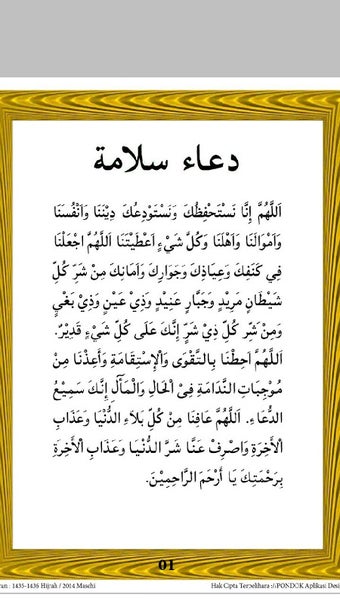 دعاء سلامة
اَللّٰهُمَّ إِنَّا نَسْتَحْفِظُكَ وَنَسْتَوْدِعُكَ دِيْنَنَا وَأَنْفُسَنَا
وَأَمْوَالَنَا وَأَهْلَنَا وَكُلَّ شَيْءٍ أَعْطَيْتَنَا اَللّٰهُمَّ اجْعَلْنَا
فِي كَنَفِكَ وَعِيَاذِكَ وَجِوَارِكَ وَأَمَانِكَ مِنْ شَرِّ كُلِّ
شَيْطَانٍ مَرِيْدٍ وَجَبَّارٍ عَنِيْدٍ وَذِيْ عَيْنٍ وَذِيْ بَغْيٍ
وَمِنْ شَرِّ كُلِّ ذِيْ شَرٍّ إِنَّكَ عَلَى كُلِّ شَيْءٍ قَدِيْرٌ.
اَللّٰهُمَّ أَحِطْنَا بِالتَّقْوَى وَالْإِسْتِقَامَةِ وَأَعِذْنَا مِنْ
مُوْجِبَاتِ النَّدَامَةِ فِى الْحَالِ وَالْمَآلِ إِنَّكَ سَمِيْعُ
الدُّعَاءِ. اَللّٰهُمَّ عَافِنَا مِنْ كُلِّ بَلَاءِ الدُّنْيَا وَعَذَابِ
الْأَخِرَةِ وَاصْرِفْ عَنَّا شَرَّ الدُّنْيَا وَعَذَابِ الْأَخِرَةِ
بِرَحْمَتِكَ يَا أَرْحَمَ الرَّاحِمِيْنَ.
01
: 1435-1436 Hijrah / 2014 Masehi
Hak Cipta Terpelihara ://PONDOK Aplikasi